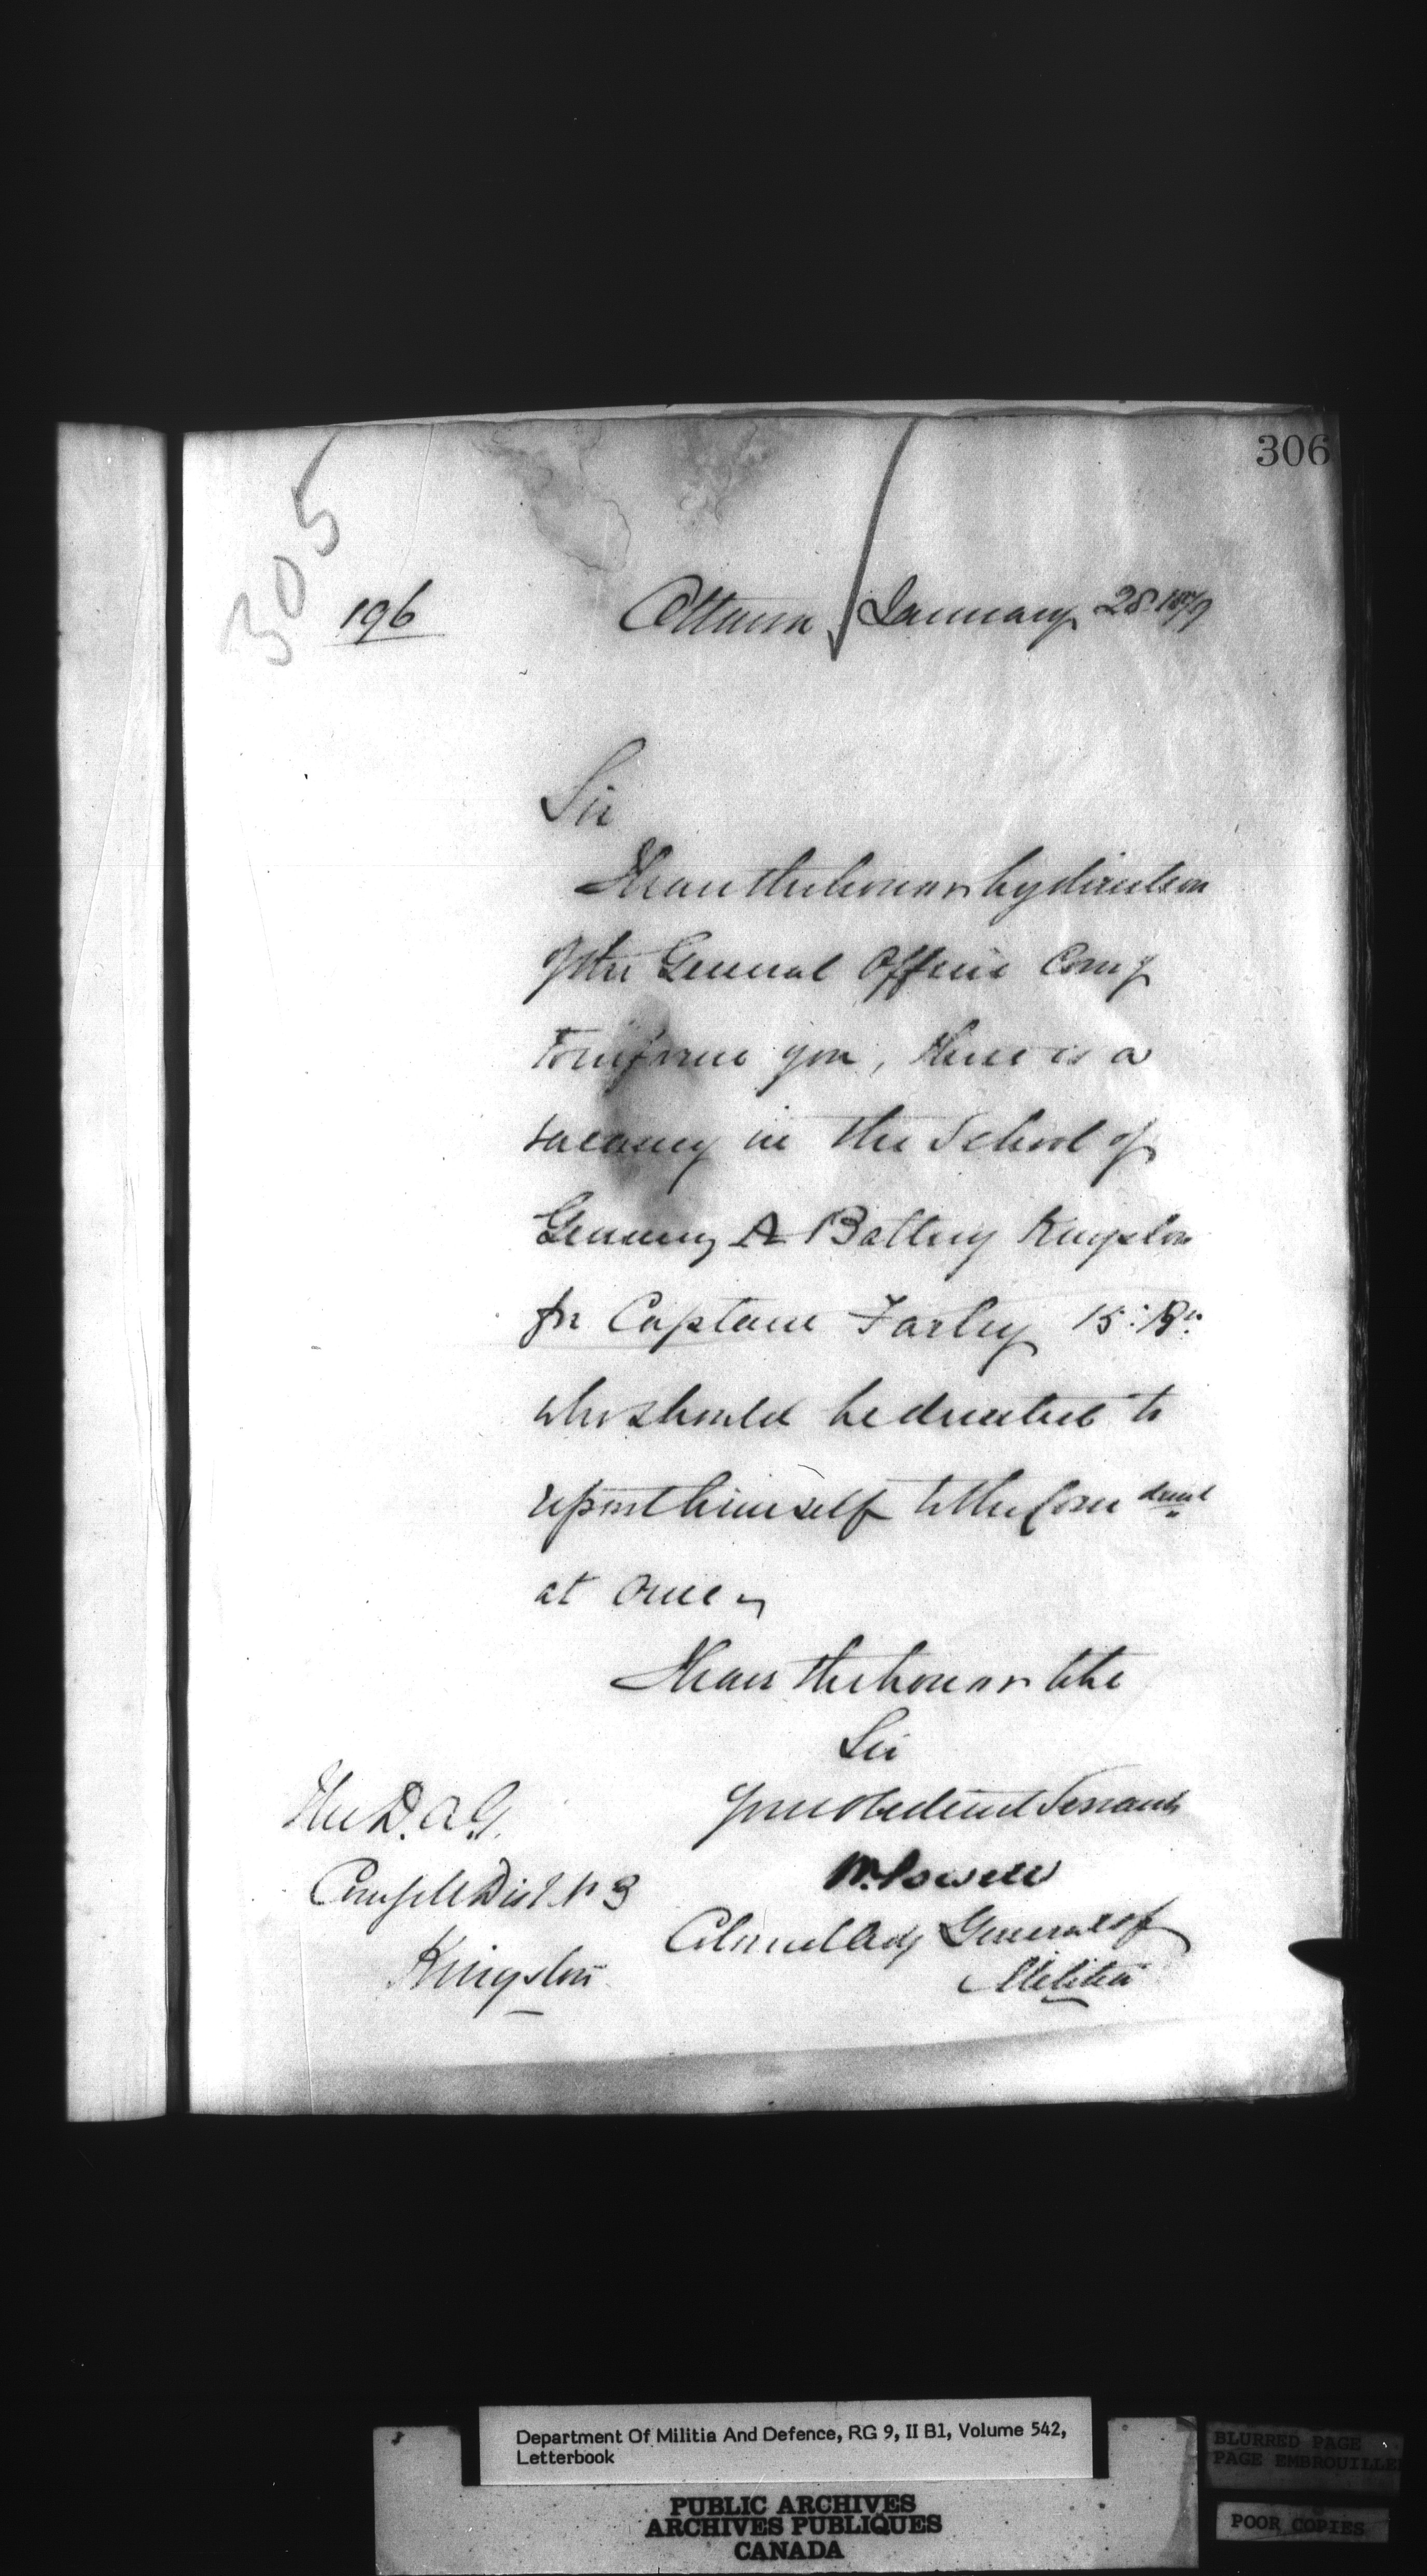 306
305
196
Ottawa January 28. 1879
Sir
I have the honor by direction
of the General Officer Comg
to inform you, there is a
vacancy in the School of
Gunnery A Battery Kingston
for Captain Farley 15: Bn.
who should be directed to
report himself to the Com dant
at once
I have the honor to be
Sir
Your obedient Servant
W. Powell
Colonel Adj General of
Militia
The D. A. G.
Comg M Dist. No 3
Kingston
Department Of Militia And Defence, RG 9, II B1, Volume 542,
Letterbook
PUBLIC ARCHIVES
ARCHIVES PUBLIQUES
CANADA
BLURRED PAGE
PAGE EMBROUILLE
POOR COPIES